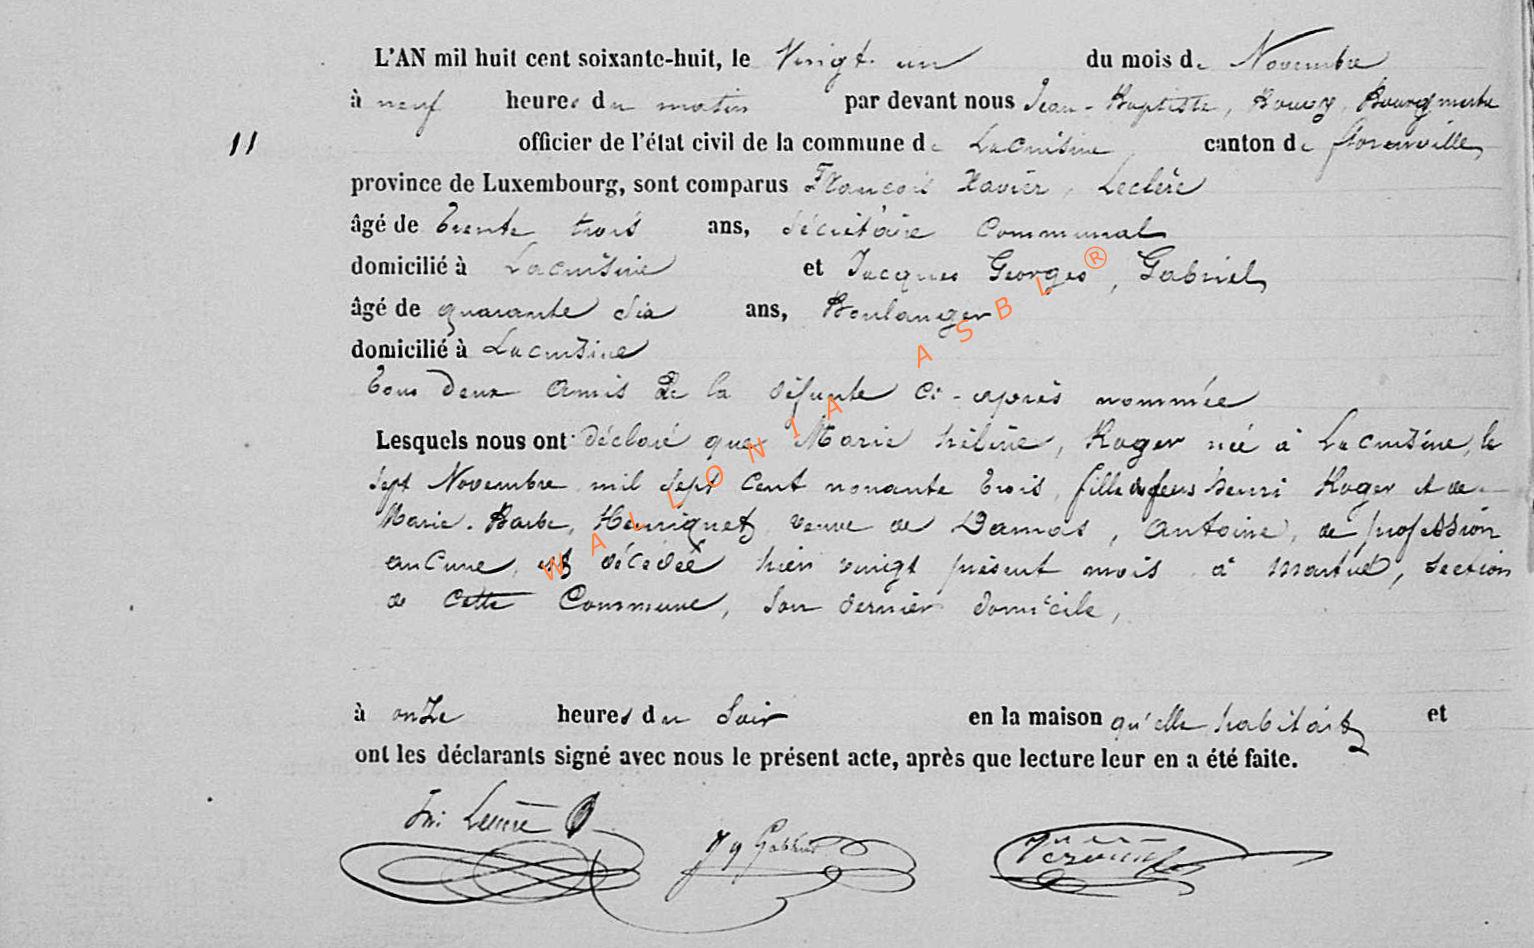 L'AN mil huit cent soixante-huit, le Vingt un du mois de Novembre
à neuf heures du matin par devant nous Jean-Baptiste, Bourgmestre
11 officier de l'état civil de la commune de Lacuisine, canton de florenville,
province de Luxembourg, sont comparus François Xavier, Leclère
âgé de trente trois ans, sécrétaire communal
domicilié à Lacuisine et Jacques Georges, Gabriel,
âgé de quarante six ans, Boulanger
domicilié à Lacuisine
tous deux amis de la défunte ci-après nommée
Lesquels nous ont déclaré que Marie hélène, Roger née à Lacuisine, le
sept Novembre mil sept cent nonante trois, fille de feus henri Roger et de
Marie-Barbe, Henriquet, veuve de Damas, antoine, de profession
aucune, est décédée hier vingt présent mois à Martué, section
de cette Commune, son dernier domicile,
à onze heures du soir en la maison qu'elle habitait et
ont les déclarants signé avec nous le présent acte, après que lecture leur en a été faite.
Leclère J G Gabriel
WALLONIA ASBL ®